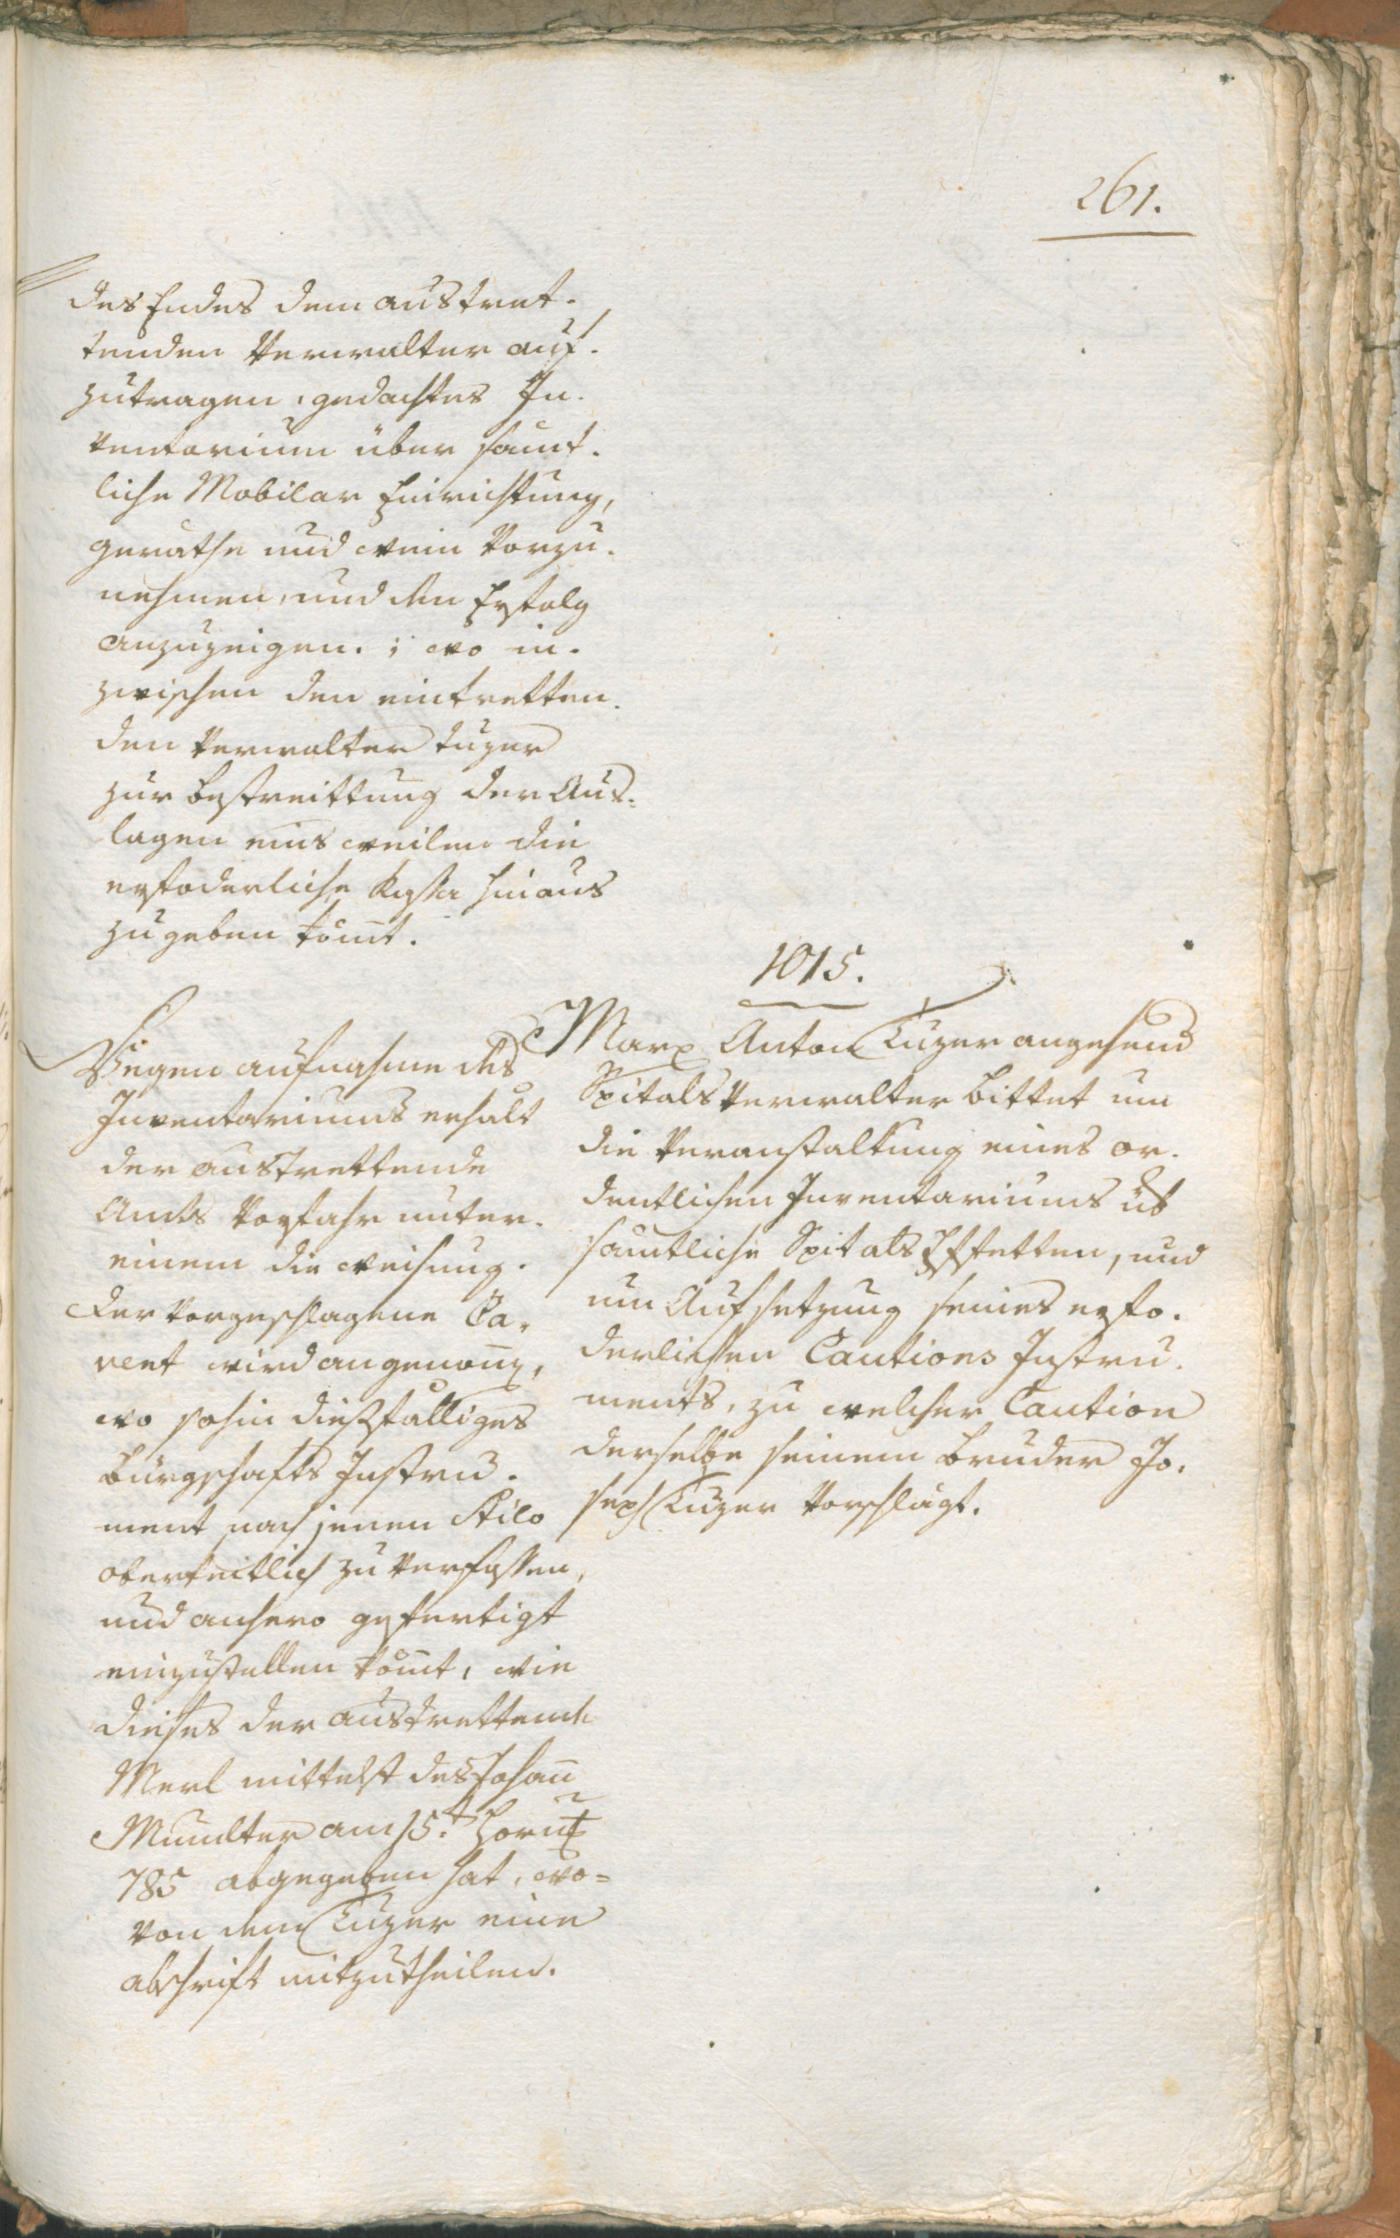 261.
des Endes dem austret-
tenden Verwalter auf-
zutragen, gedachtes In-
ventarium über samt-
liche Mobilar Einrichtung,
geräthe und wein vorzu-
nehmen, und den Erfolg
anzuzeigen. ; wo in-
zwischen den eintretten-
den Verwalter Tuzer
zur bestreittung der Aus-
lagen einsweilen die
erfoderliche Kassa hinaus
zu geben kömt.
1015.
Wegen aufnahme des
Inventariums erhalt
der austrettende
Amts Vorfahr unter-
einem die weisung.
der vorgeschlagene Ca-
vent wird angenom̄,
wo sohin dießfälliges
bürgschafts Instru-
ment nach jenen Stilo
oberkeitlich zu verfassen,
und anhero gefertigt
einzustellen kömt, wie
dieses der austrettende
Merl mittelst des Johan̄
Mumlter am 15.t Hornung
785 abgegeben hat, wo-
von dem Tuzer eine
abschrift mitzutheilen.
Marx Anton Tuzer angehend
Spitals Verwalter bittet um
die Veranstaltung eines or-
dentlichen Inventariums üb
samtliche Spitals Effetten, und
um Aufsetzung seines erfo-
derlichen Cautions Instru-
ments, zu welcher Caution
derselbe seinem bruder Jo-
seph Tuzer vorschlägt.